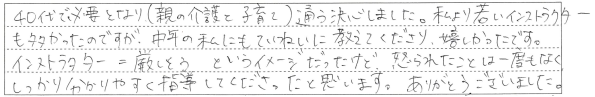 40代で必要となり(親の介護と子育て)通う決心しました。私より若いインストラクター
も多かったのですが、中年の私にもていねいに教えてくださり、嬉しかったです。
インストラクター=厳しそう というイメージだったけど、怒られたことは一度もなく
しっかり分かりやすく指導してくださったと思います。ありがとうございました。